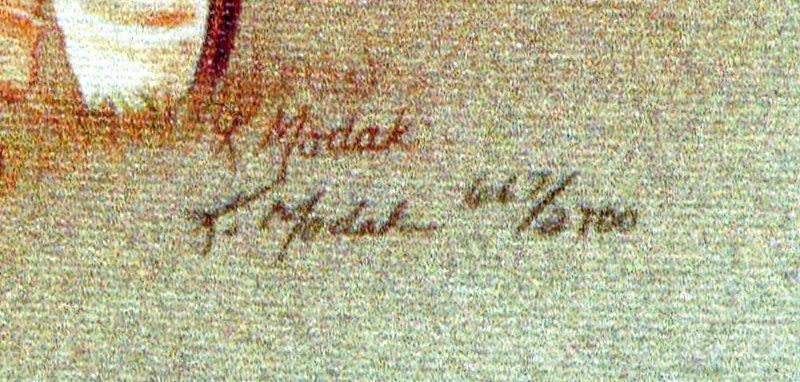 R Modak
R. Modak 667/2700